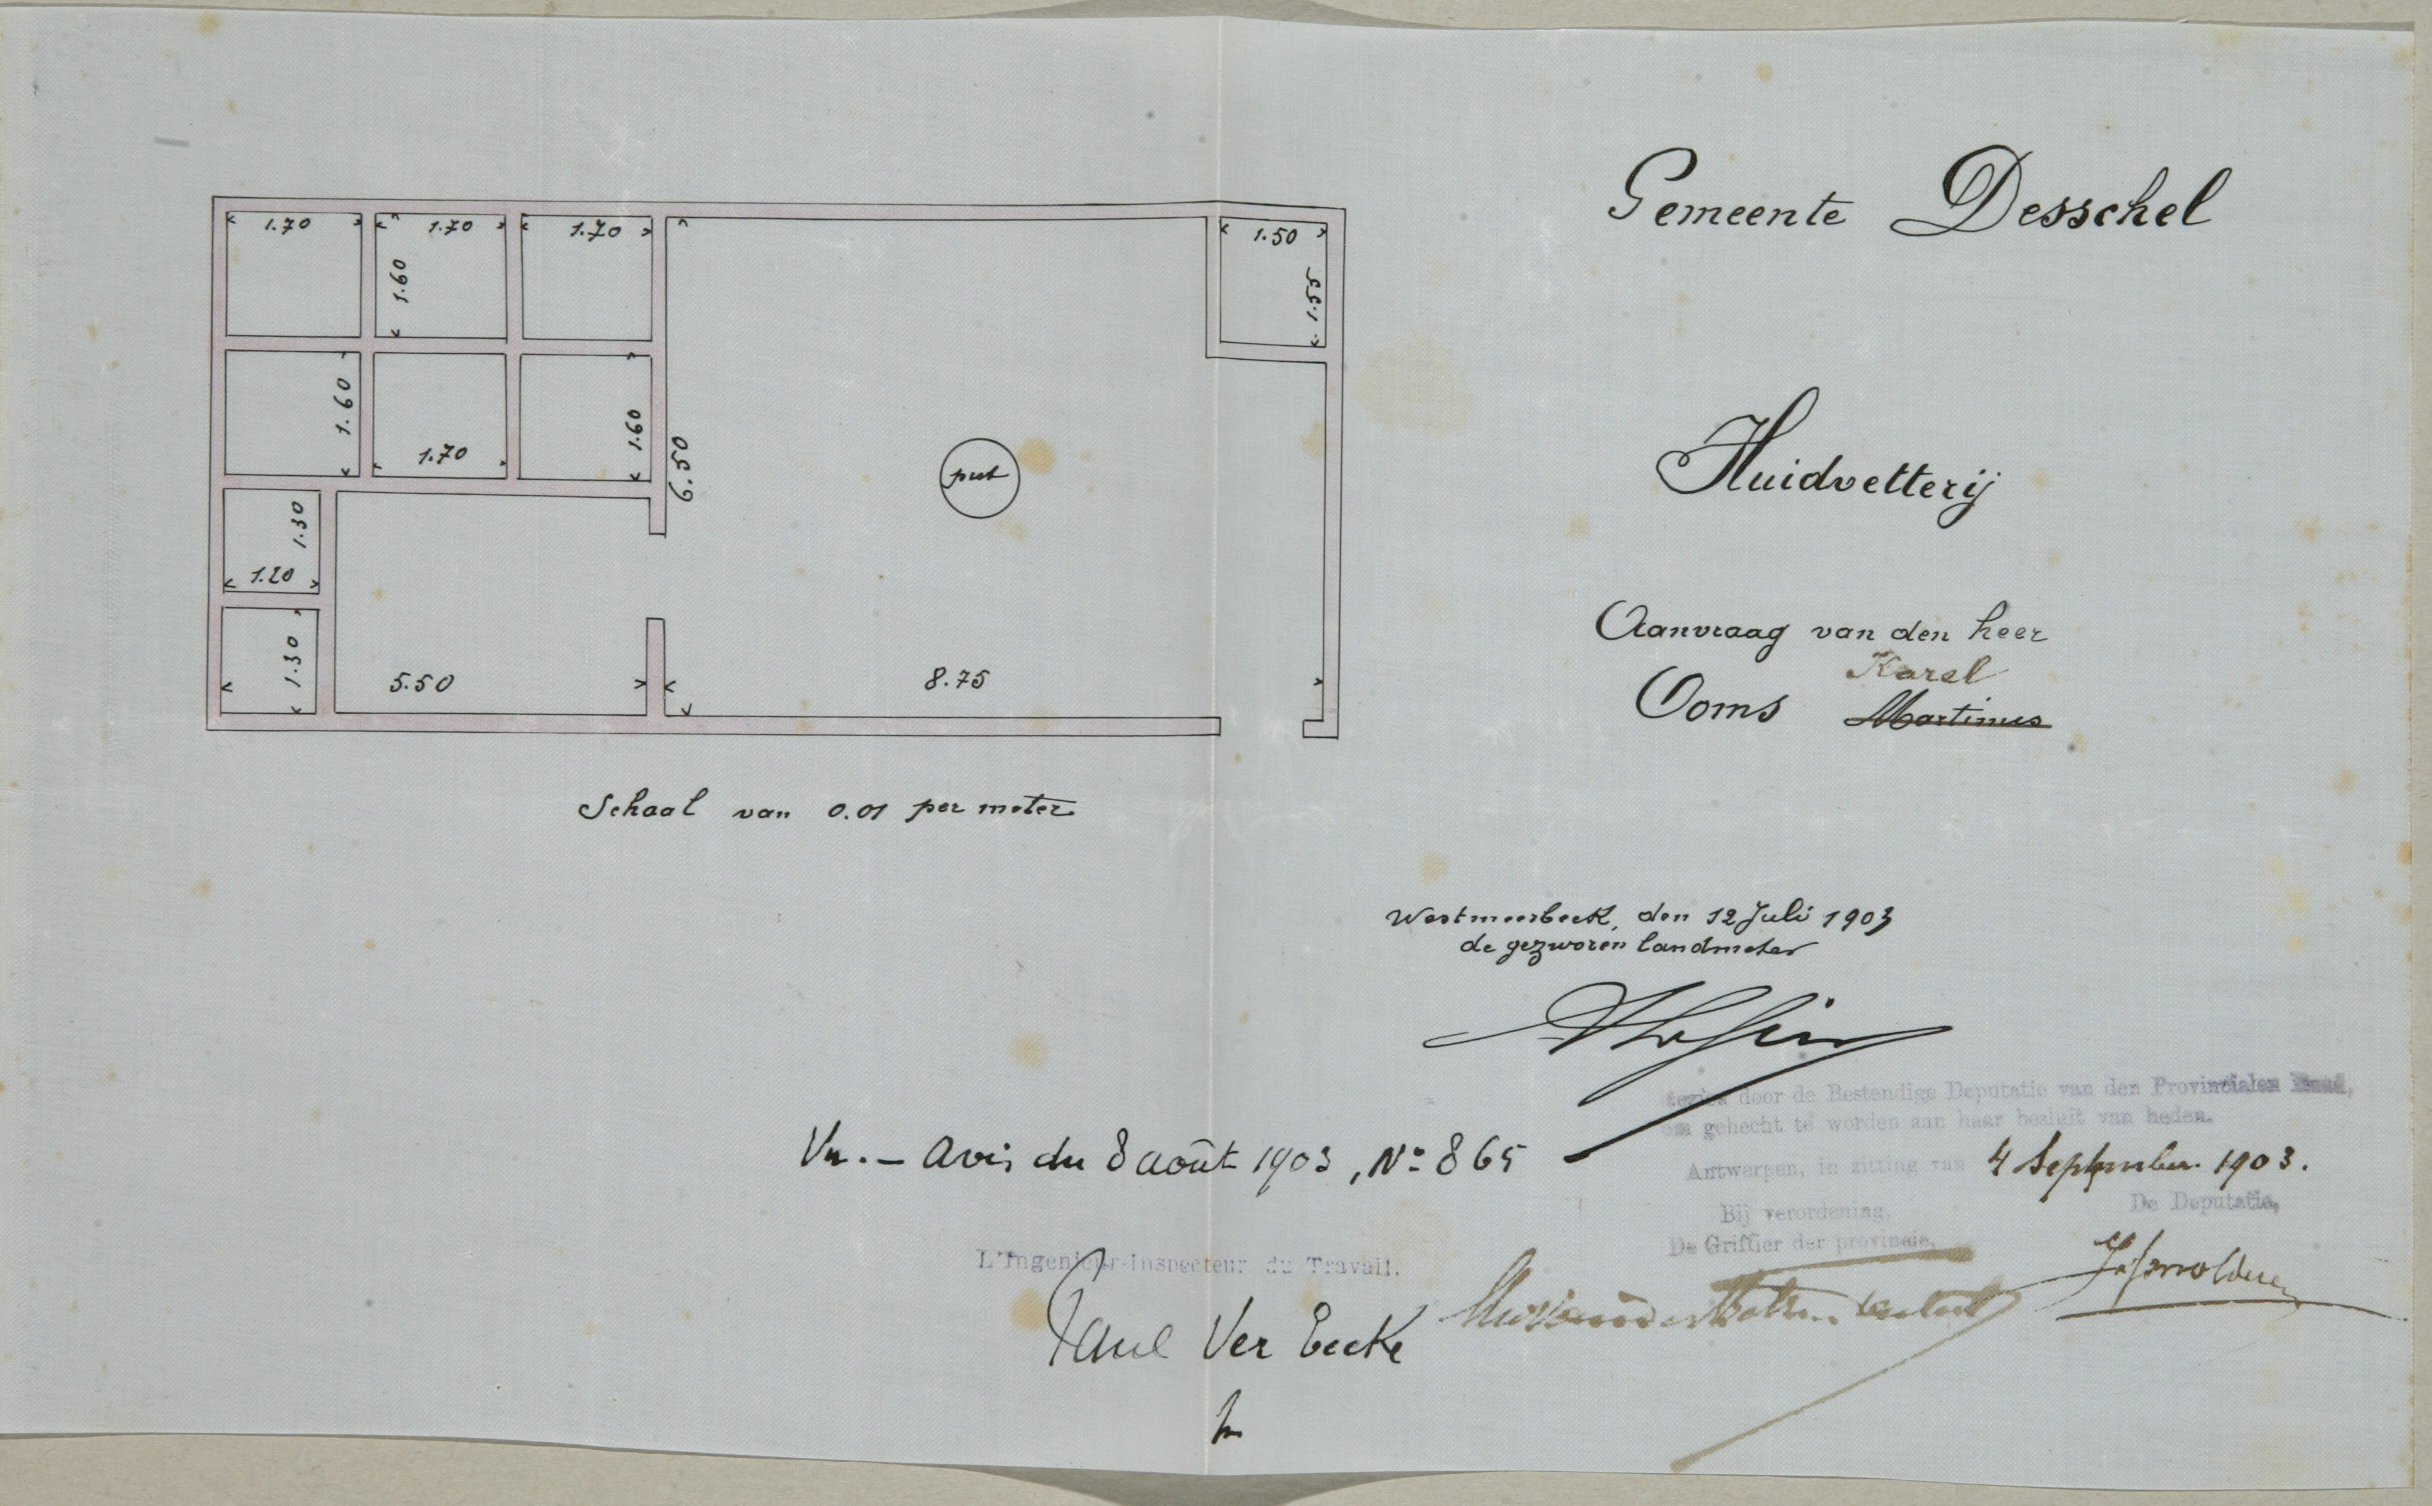 1.70
1.70
1.70
1.50
1.60
1.55
1.60
1.60
6.50
put
1.70
1.30
1.20
1.30
5.50
8.75
Schaal van 0.01 per meter
Gemeente Desschel
Huidvetterij
Aanvraag van den heer
Karel
Ooms Martinus
Westmeerbeek, den 12 Juli 1903
de gezworen landmeter
Vu. - Avis du 8 août 1903, No 865
L'Ingenieur-Inspecteur du Travail.
Paul Ver Eecke
Gezien door de Bestendige Deputatie van den Provincialen Raad,
om gehecht te worden aan haar besluit van heden.
Antwerpen, in zitting van 4 September 1903.
Bij verordening,
De Griffier der provincie,
De Deputatie,